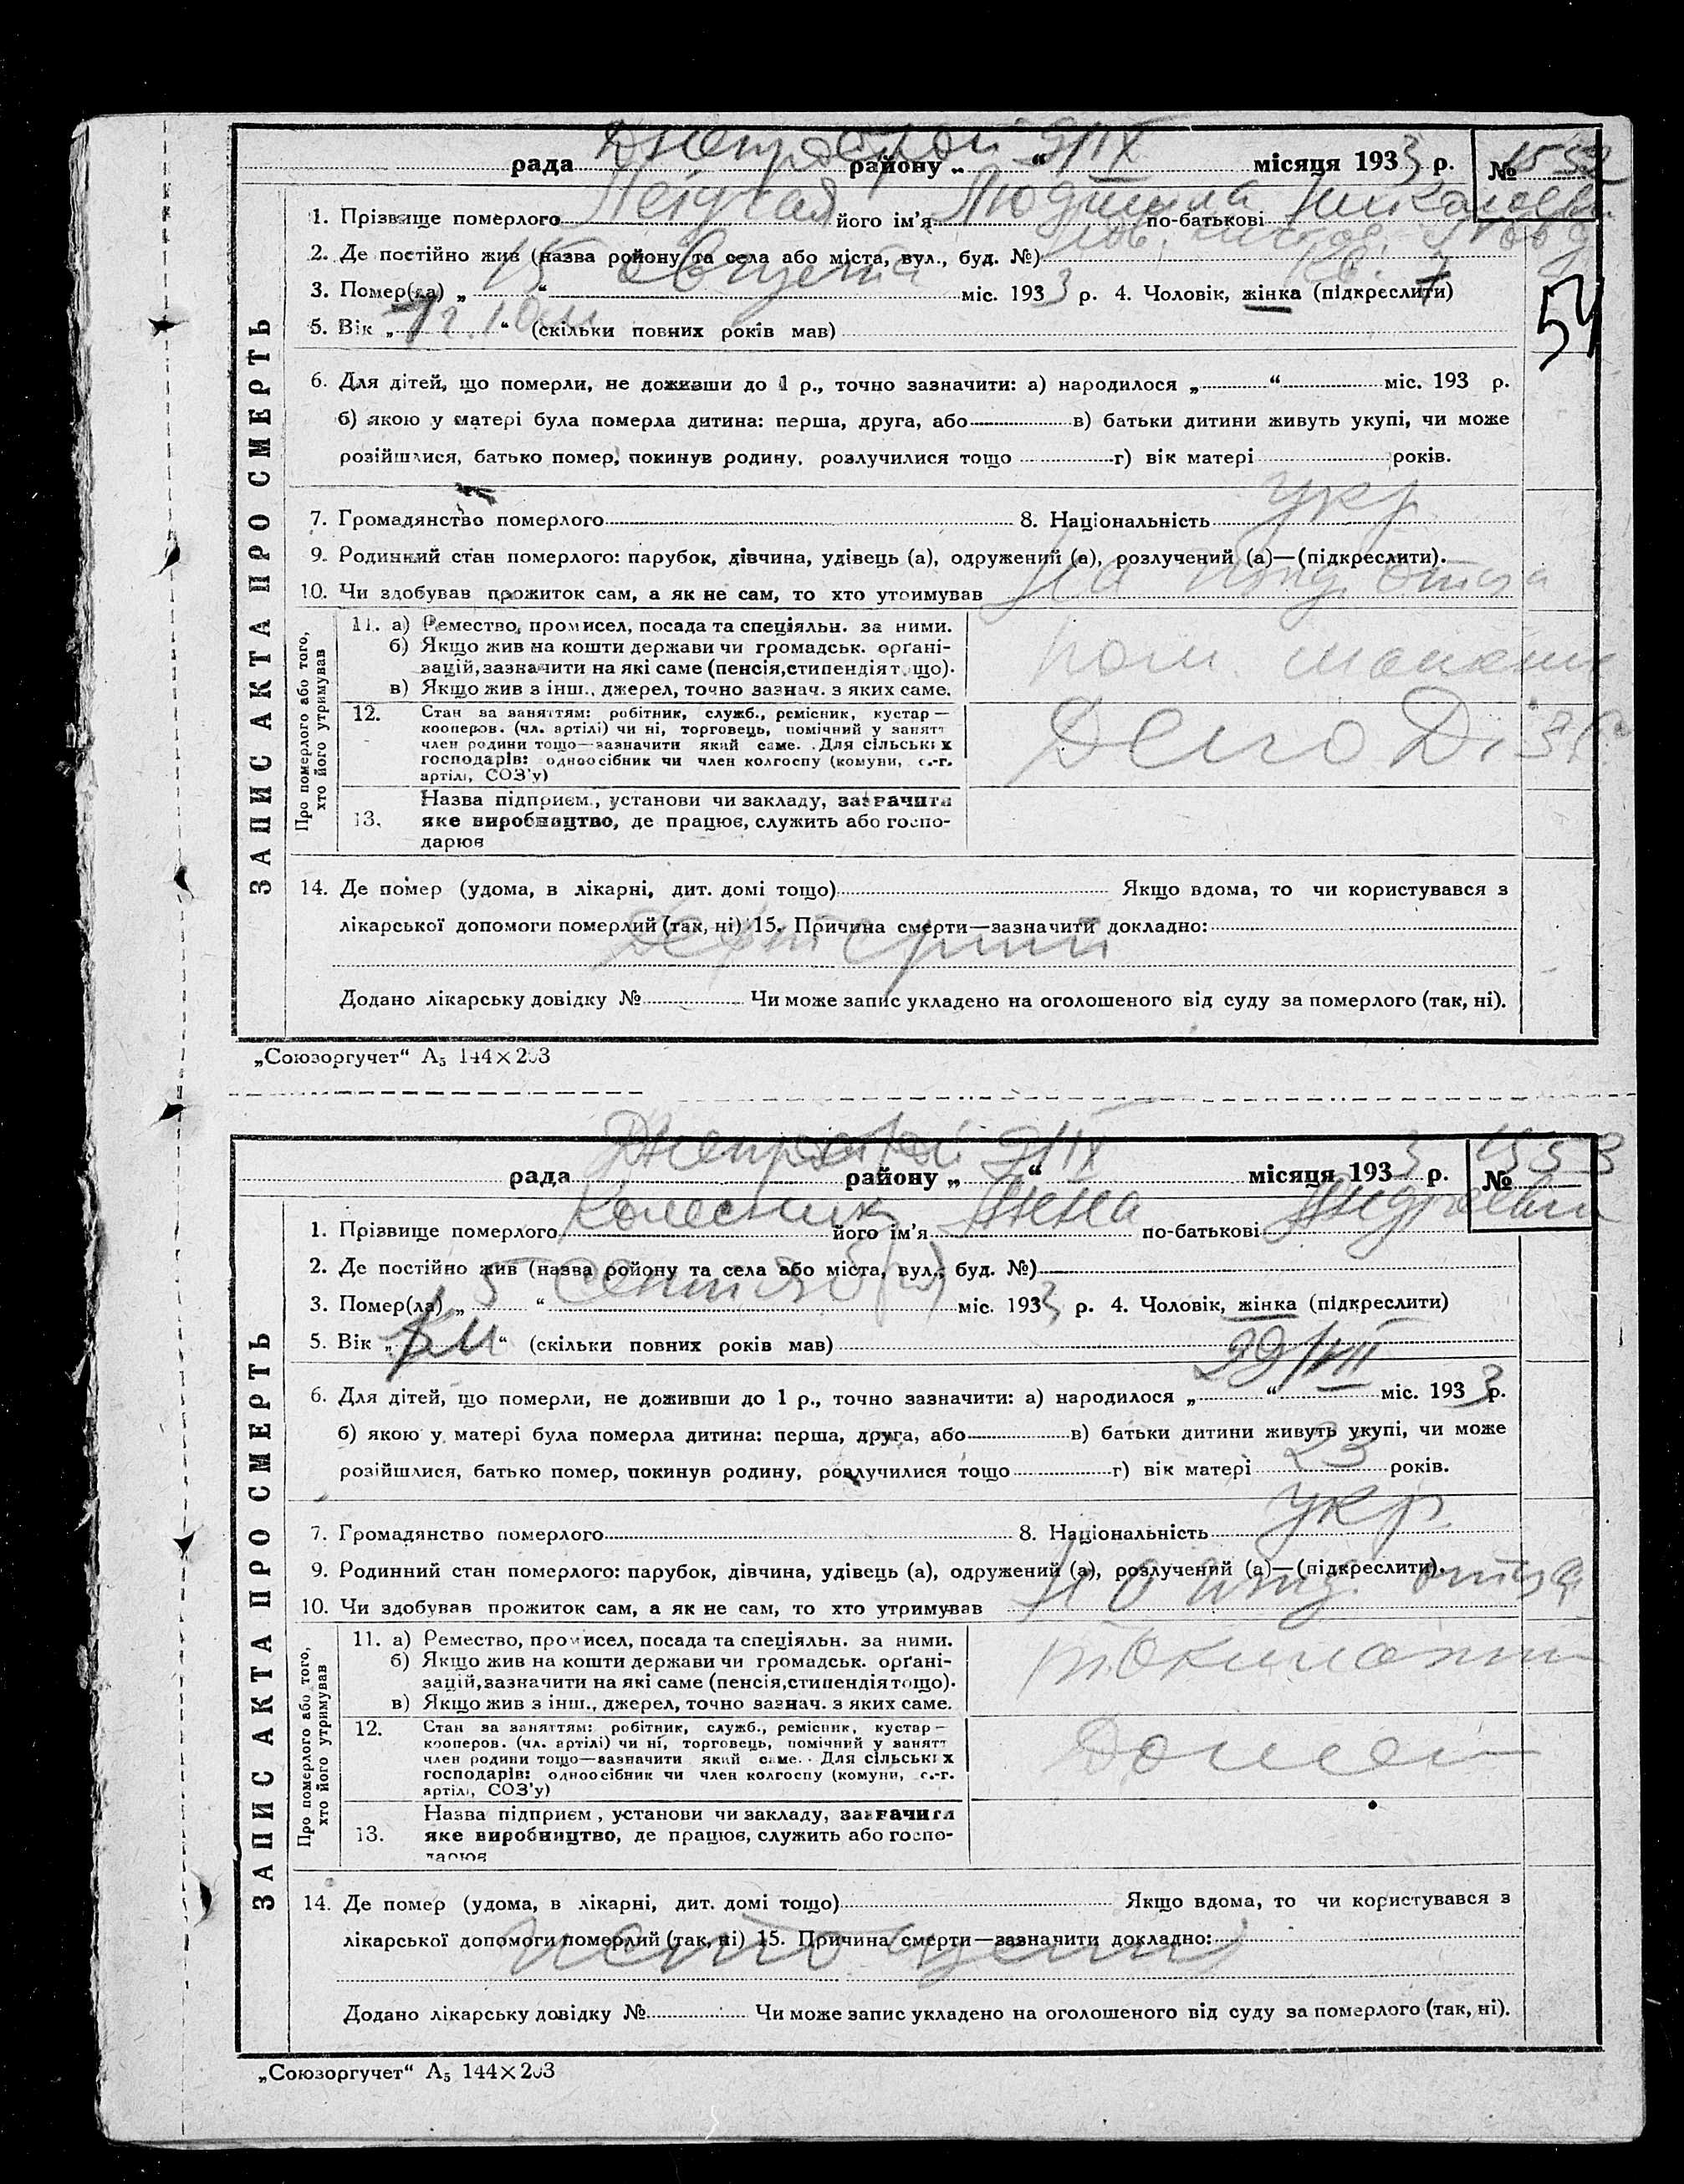 Днепрострой 9/IX
рада району „ “ місяця 1933 р. № 1552
1. Прізвище померлого його ім'я Людмила по-батькові
2. Де постійно жив (назва району та села або міста, вул., буд. №)
кв. 7
3. Помер(ла) „ 15 “ августа міс. 1933 р. 4. Чоловік, жінка (підкреслити)
54
5. Вік „ 1 г. 10 м “ (скільки повних років мав)
6. Для дітей, що померли, не доживши до 1 р., точно зазначити: а) народилося „ “ міс. 193 р.
б) якою у матері була померла дитина: перша, друга, або в) батьки дитини живуть укупі, чи може
розійшлися, батько помер, покинув родину, розлучилися тощо г) вік матері років.
7. Громадянство померлого 8. Національність укр
9. Родинний стан померлого: парубок, дівчина, удівець (а), одружений (а), розлучений (а)—(підкреслити).
10. Чи здобував прожиток сам, а як не сам, то хто утримував На ижд. отца
ЗАПИС АКТА ПРО СМЕРТЬ
Про померлого або того, хто його утримував
11. а) Ремество, промисел, посада та спеціяльн. за ними.
б) Якщо жив на кошти держави чи громадськ. орґані-
зацій, зазначити на які саме (пенсія, стипендія тощо).
в) Якщо жив з інш., джерел, точно зазнач. з яких саме.
пом.
12. Стан за заняттям: робітник, служб., ремісник, кустар—
кооперов. (чл. артілі) чи ні, торговець, помічний у занятт
член родини тощо—зазначити який саме. Для сільських
господарів: одноосібник чи член колгоспу (комуни, с.-г.
артілі, СОЗ'у)
Депо
13. Назва підприєм., установи чи закладу, зазначити
яке виробництво, де працює, служить або госпо-
дарює
14. Де помер (удома, в лікарні, дит. домі тощо) Якщо вдома, то чи користувався з
лікарської допомоги померлий (так, ні) 15. Причина смерти—зазначити докладно:
Дезентерия
Додано лікарську довідку № Чи може запис укладено на оголошеного від суду за померлого (так, ні).
„Союзоргучет“ А5 144×203
Днепрострой 9/IX
рада району „ “ місяця 1933 р. № 1553
1. Прізвище померлого Колесник його ім'я Анна по-батькові Андреевна
2. Де постійно жив (назва ройону та села або міста, вул., буд. №)
3. Помер(ла) „ 5 “ сентября міс. 1933 р. 4. Чоловік, жінка (підкреслити)
5. Вік „ 1 м “ (скільки повних років мав)
6. Для дітей, що померли, не доживши до 1 р., точно зазначити: а) народилося „ 29 “ VII міс. 1933 р.
б) якою у матері була померла дитина: перша, друга, або в) батьки дитини живуть укупі, чи може
розійшлися, батько помер, покинув родину, розлучилися тощо г) вік матері 23 років.
7. Громадянство померлого 8. Національність укр
9. Родинний стан померлого: парубок, дівчина, удівець (а), одружений (а), розлучений (а)—(підкреслити).
10. Чи здобував прожиток сам, а як не сам, то хто утримував На ижд. отца
ЗАПИС АКТА ПРО СМЕРТЬ
Про померлого або того, хто його утримував
11. а) Ремество, промисел, посада та спеціяльн. за ними.
б) Якщо жив на кошти держави чи громадськ. орґані-
зацій, зазначити на які саме (пенсія, стипендія тощо).
в) Якщо жив з інш., джерел, точно зазнач. з яких саме.
12. Стан за заняттям: робітник, служб., ремісник, кустар—
кооперов. (чл. артілі) чи ні, торговець, помічний у занятт
член родини тощо—зазначити який саме. Для сільських
господарів: одноосібник чи член колгоспу (комуни, с.-г.
артілі, СОЗ'у)
13. Назва підприєм., установи чи закладу, зазначити
яке виробництво, де працює, служить або госпо-
дарює
14. Де помер (удома, в лікарні, дит. домі тощо) Якщо вдома, то чи користувався з
лікарської допомоги померлий (так, ні) 15. Причина смерти—зазначити докладно:
истощение
Додано лікарську довідку № Чи може запис укладено на оголошеного від суду за померлого (так, ні).
„Союзоргучет“ А5 144×203